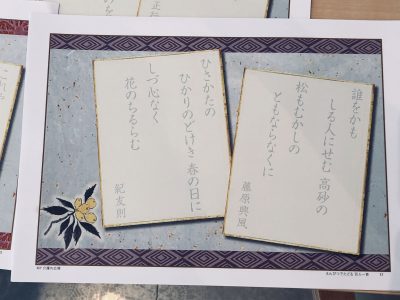 誰をかも
しる人にせむ 高砂の
松もむかしの
ともならなくに
藤原興風
ひさかたの
ひかりのどけき 春の日に
しづ心なく
花のちるらむ
紀友則
えんぴつでたどる 百人一首